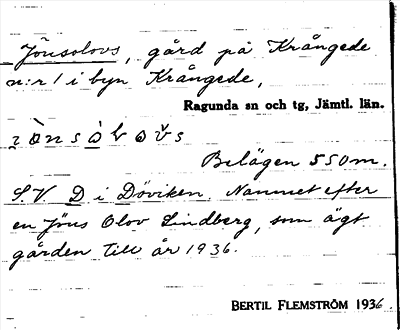 Jönsolovs, gård på Krångede
n:r 1 i byn Krångede,
Ragunda sn och tg, Jämtl. län.
Belägen 550m.
S.V. D i Döviken. Namnet efter
en Jöns Olov Lindberg, som ägt
gården till år 1936.
BERTIL FLEMSTRÖM 1936.